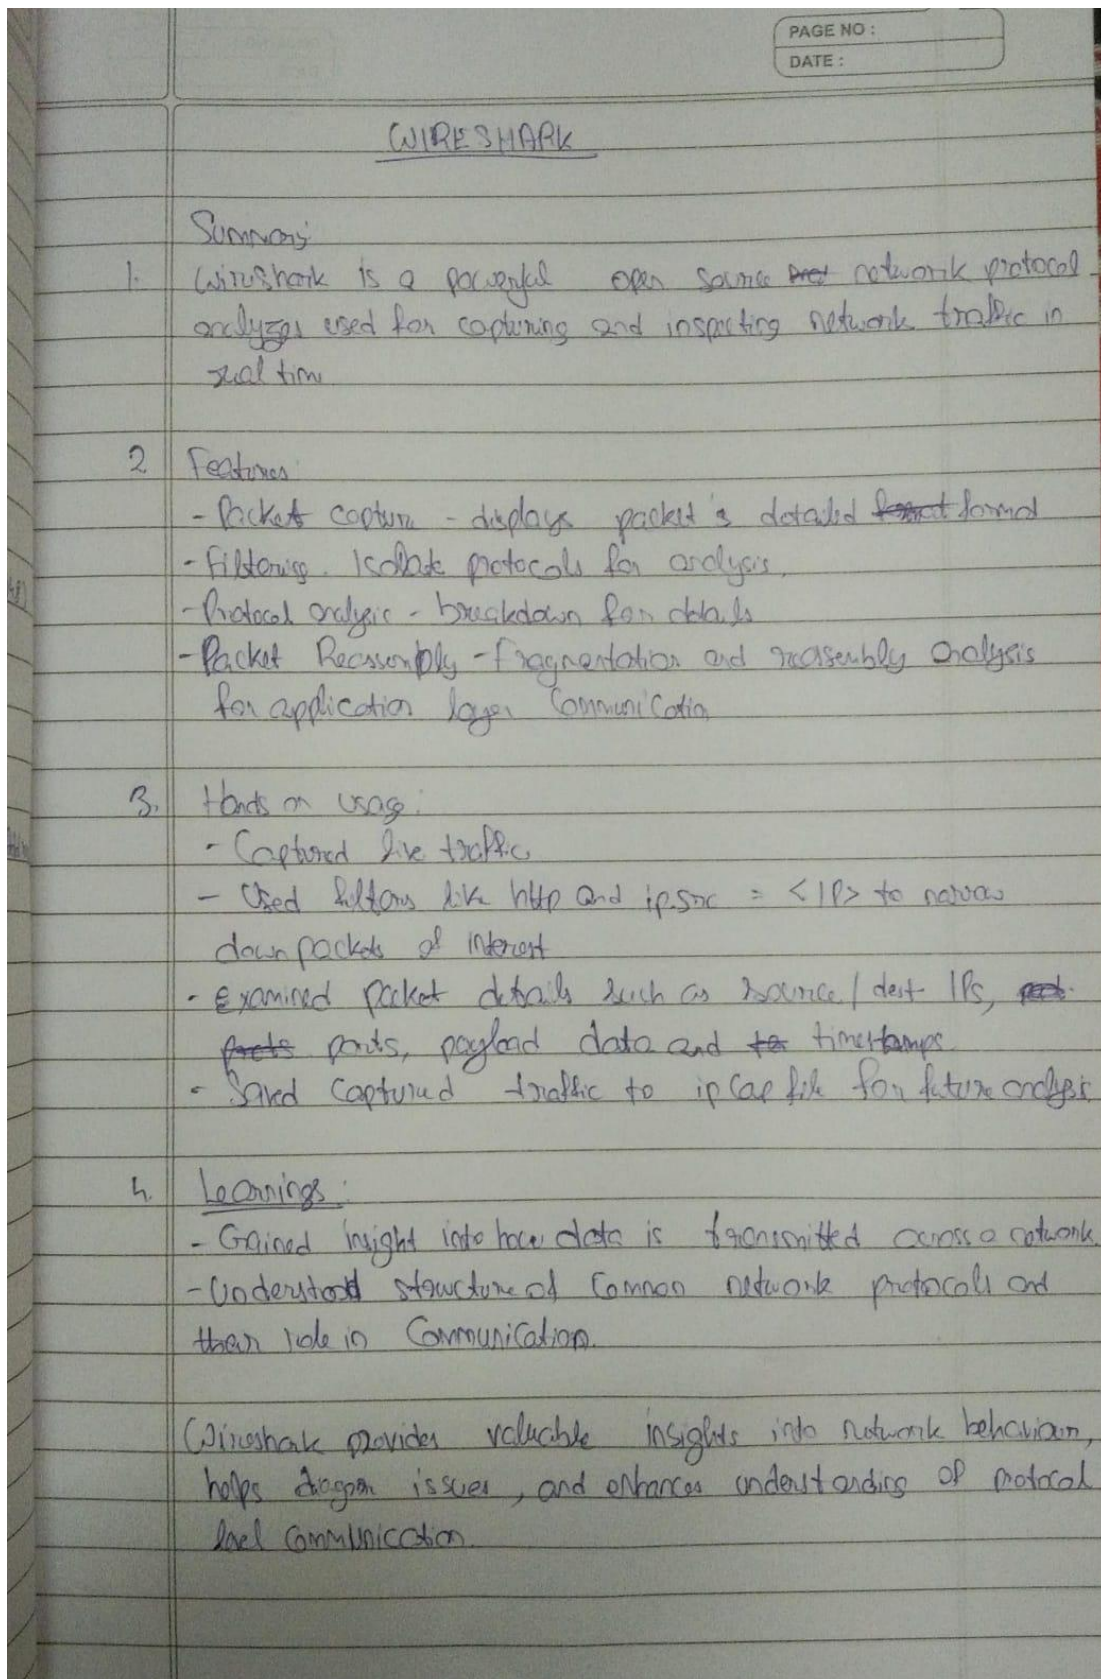 PAGE NO :
DATE :
WIRESHARK
Summary
1. Wireshark is a powerful open source network protocol
analyzer used for capturing and inspecting network traffic in
real time
2 Features:
- Packet capture - displays packet's detailed format
- Filtering. Isolate protocols for analysis.
- Protocol analysis - breakdown for details
- Packet Reassembly - fragmentation and reassembly analysis
for application layer Communication
3. Hands on usage:
- Captured live traffic
- Used filters like http and ip.src = <IP> to narrow
down packets of interest
- Examined packet details such as source/dest IPs,
ports, payload data and timestamps
- Saved captured traffic to ipcap file for future analysis
4. Learnings:
- Gained insight into how data is transmitted across a network
- Understood structure of Common network protocols and
their role in Communication.
Wireshark provides valuable insights into network behaviour,
helps issues, and enhances understanding of protocol
communication.